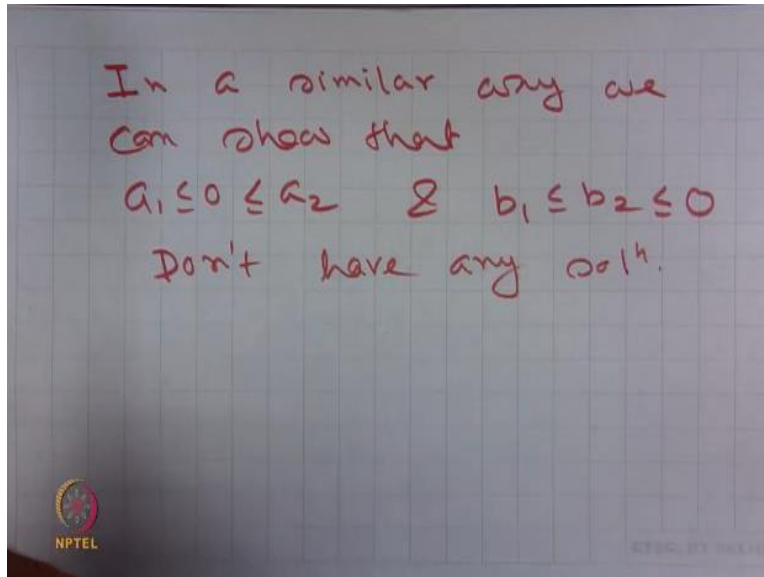 In a similar way we
can show that
a₁ ≤ 0 ≤ a₂ & b₁ ≤ b₂ ≤ 0
Don't have any solⁿ.
NPTEL